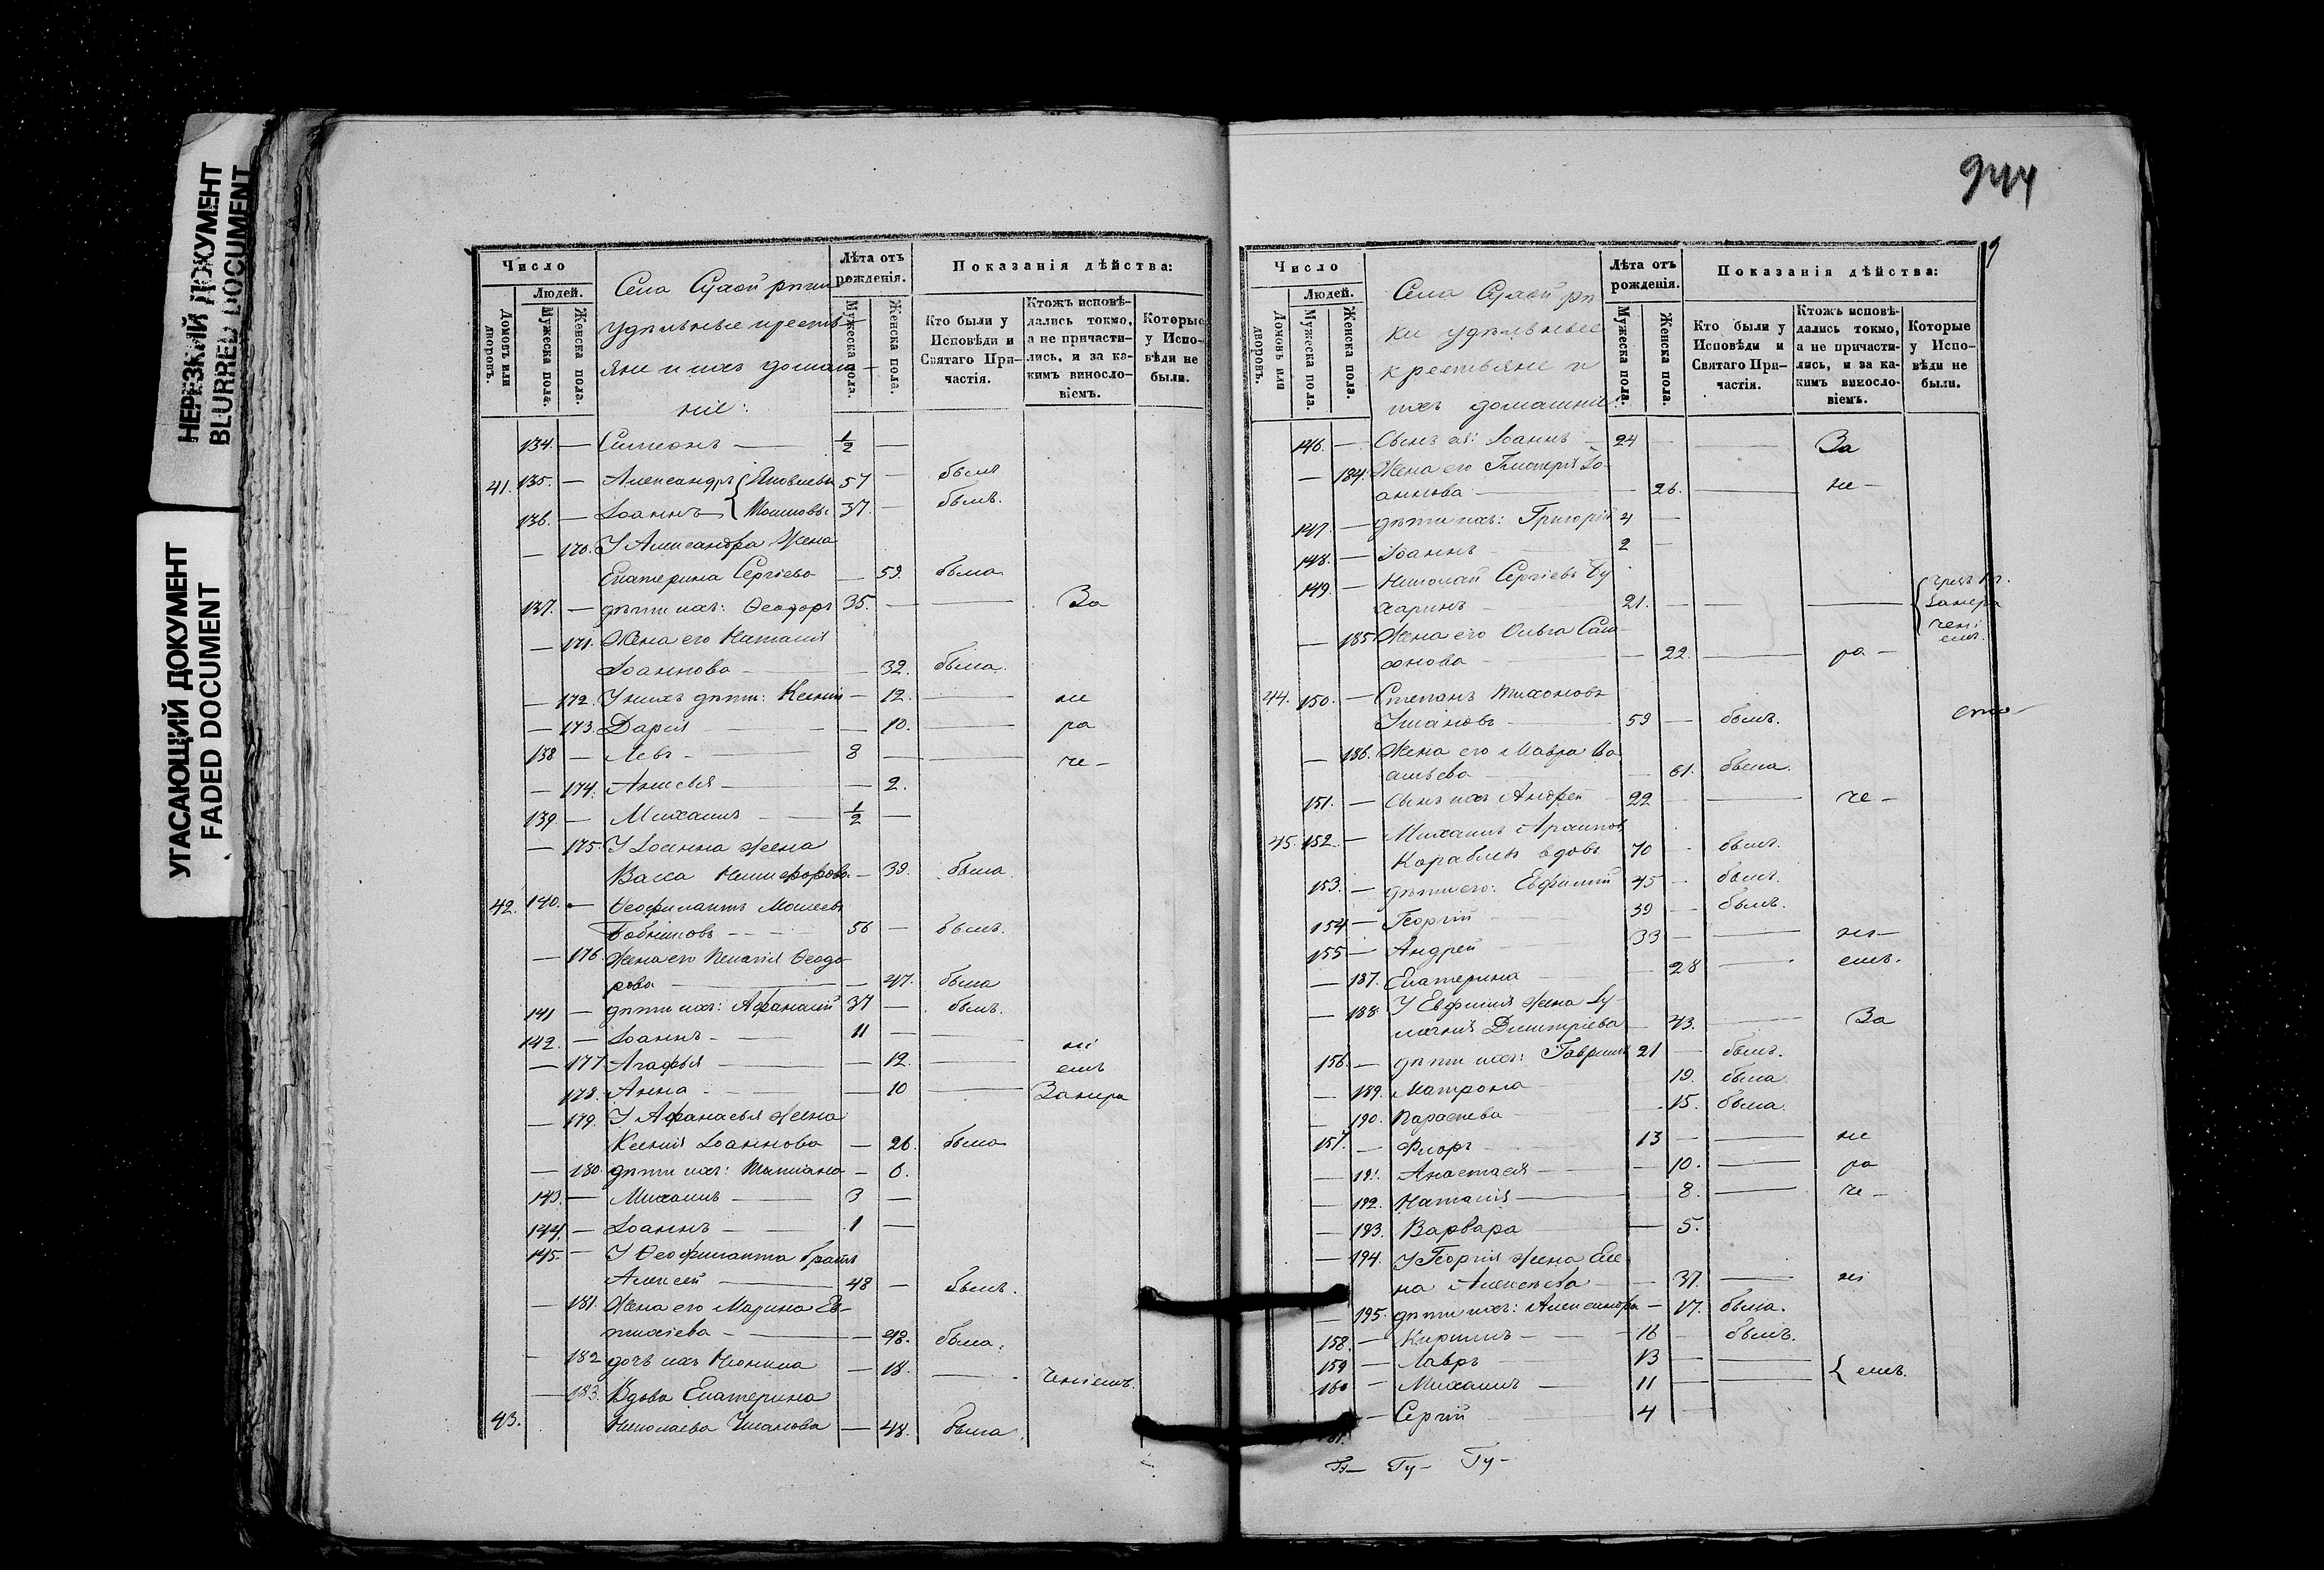 НЕРЕЗКИЙ ДОКУМЕНТ
BLURRED DOCUMENT
УГАСАЮЩИЙ ДОКУМЕНТ
FADED DOCUMENT
Число
Людей.
Домовъ или дворовъ.
Мужеска пола.
Женска пола.
Села Сухой рѣчки
удѣльные кресть-
яне и ихъ домаш-
ніе:
Лѣта отъ рожденія.
Мужеска пола.
Женска пола.
Показанія дѣйства:
Кто были у Исповѣди и Святаго Причастія.
Ктожъ исповѣ-
дались токмо,
а не причасти-
лись, и за ка-
кимъ винословіемъ.
Которые у Испо-
вѣди не были.
134. — Симеонъ — ½ —
41. 135. — Александръ { Яковлевы 57 — былъ
136. — Іоаннъ { 37. — былъ.
— 170. У Александра жена
Екатерина Сергіева — 59. была.
137. — дѣти ихъ: Ѳеодоръ 35. — — За
— 171. Жена его Наталія
Іоаннова — 32. была.
— 172. У нихъ дѣти: Ксенія — 12. — не
— 173. Дарія — — 10. — ра
138 — Левъ — 8 — — че —
— 174. Анисья — — 2.
139 — Михаилъ — ½ —
— 175. У Іоанна жена
Васса Никифорова — 39. была.
42. 140. — Ѳеофилактъ Моисеевъ
56 — былъ.
— 176 Жена его Пелагія Ѳеодо-
рова — — 47. была
141 — дѣти ихъ: Афанасій 37 — былъ.
142. — Іоаннъ — 11 — — ні
— 177 Агафья — — 12. — емъ
178. Анна — — 10 — Занера
— 179. У Афанасья жена
Ксенія Іоаннова — 26. была
— 180. дѣти ихъ: Татіана — 6.
143. — Михаилъ — 3 —
144. — Іоаннъ — 1 —
145. — У Ѳеофилакта братъ
Алексей — 48 — былъ.
— 181. Жена его Марина Ев-
тихіева — — 48. была.
— 182 дочь ихъ Неонила — 18. — ченіемъ.
— 183. Вдова Екатерина
43. Николаева Ушакова — 48. была
944
Число
Людей.
Домовъ или дворовъ.
Мужеска пола.
Женска пола.
Села Сухой рѣч
ки удѣльные
крестьяне и
ихъ домашніе:
Лѣта отъ рожденія.
Мужеска пола.
Женска пола.
Показанія дѣйства:
Кто были у Исповѣди и Святаго Причастія.
Ктожъ исповѣ-
дались токмо,
а не причасти-
лись, и за ка-
кимъ винословіемъ.
Которые у Испо-
вѣди не были.
146. — Сынъ ея: Іоаннъ — 24 — — За
— 184. Жена его Гликерія Іо-
аннова — — 26. — не —
147. — дѣти ихъ: Григорій 4 —
148. — Іоаннъ — 2 —
149. — Николай Сергіевъ Бу
харинъ — 21. — — — { Занера
ченi
емъ.
— 185. Жена его Ольга
— 22. — ра —
44. 150. — Степанъ Тихоновъ
Ушаковъ — 59 — былъ.
— 186. Жена его Мавра Ва
сильева — — 61. была.
151. — Сынъ ихъ Андрей 22 — — че —
45. 152. — Михаилъ Архиповъ
Кораблевъ вдовъ 70 — былъ.
153. — дѣти его: Евфимій 45 — былъ.
154 — Георгій 39 — былъ.
155 — Андрей 33 — — ні —
— 187. Екатерина 28 — емъ.
— 188. У Евфимія жена Гу
Димитріева — 43. — За
156. — дѣти ихъ: Гавріилъ 21 — былъ.
— 189. Матрона — 19. была.
— 190. Параскева — 15. была.
157. — Флоръ 13 — — не
— 191. Анастасія — — 10. — ра
— 192. Наталія — 8. — че —
— 193. Варвара — 5.
— 194. У Георгія жена Еле
на Алексѣева — 37. — ні
— 195. дѣти ихъ: Александра — 17. была.
158. — Кириллъ — 16 — былъ.
159 — Лавръ 13 — —
160 — Михаилъ — 11 — — { емъ.
— Сергій 4 —